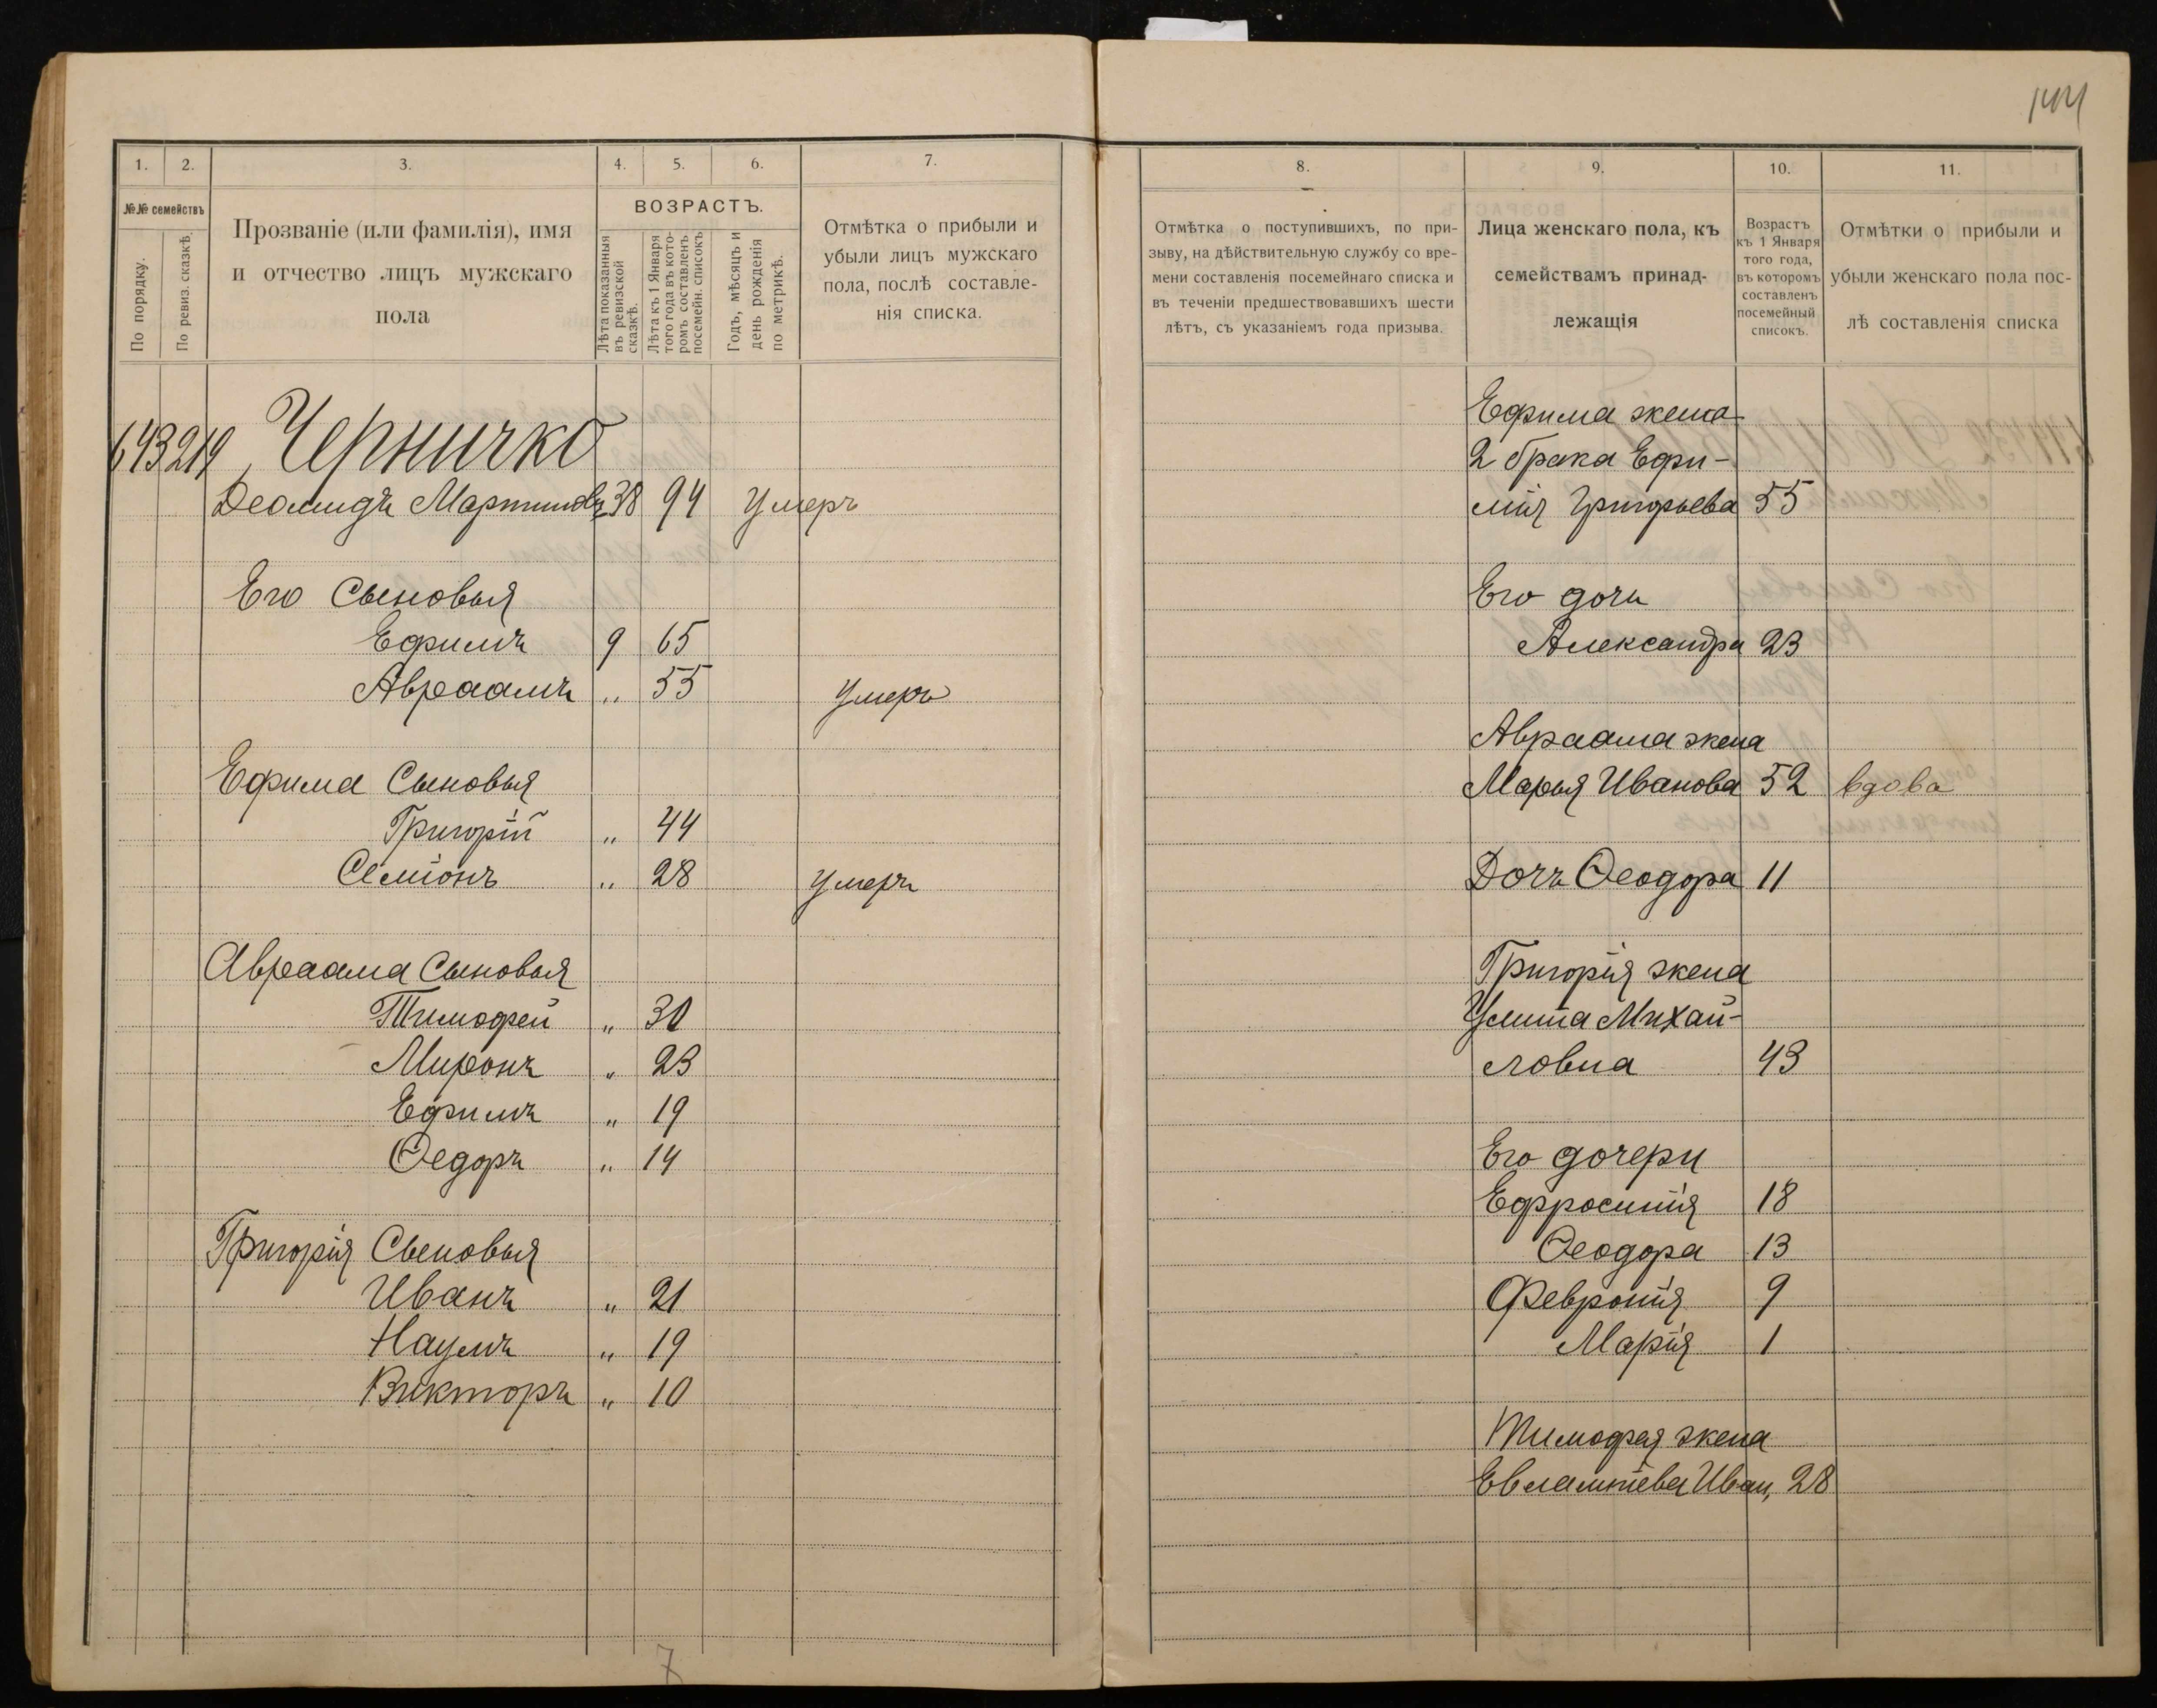 144
1. 2. 3. 4. 5. 6. 7.
№№ семействъ
По порядку.
По ревиз. сказкѣ.
Прозваніе (или фамилія), имя
и отчество лицъ мужскаго
пола
ВОЗРАСТЪ.
Лѣта показанныя
въ ревизской
сказкѣ.
Лѣта къ 1 Января
того года въ кото-
ромъ составленъ
посемейн. списокъ
Годъ, мѣсяцъ и
день рожденія
по метрикѣ.
Отмѣтка о прибыли и
убыли лицъ мужскаго
пола, послѣ составле-
нія списка.
643 219 Черничко
Деомидъ Мартиновъ 38 94 Умеръ
Его Сыновья
Ефимъ 9 65
Авраамъ „ 55 Умеръ
Ефима Сыновья
Григорій „ 44
Семіонъ „ 28 Умеръ
Авраама Сыновья
Тимофей „ 30
Миронъ „ 23
Ефимъ „ 19
Ѳедоръ „ 14
Григорія Сыновья
Иванъ „ 21
Наумъ „ 19
Викторъ „ 10
7
8. 9. 10. 11.
Отмѣтка о поступившихъ, по при-
зыву, на дѣйствительную службу со вре-
мени составленія посемейнаго списка и
въ теченіи предшествовавшихъ шести
лѣтъ, съ указаніемъ года призыва.
Лица женскаго пола, къ
семействамъ принад-
лежащія
Возрастъ
къ 1 Января
того года,
въ которомъ
составленъ
посемейный
списокъ.
Отмѣтки о прибыли и
убыли женскаго пола пос-
лѣ составленія списка
Ефима жена
2 брака Ефи-
мія Григорьева 55
Его дочь
Александра 23
Авраама жена
Марья Иванова 52 вдова
Дочъ Ѳеодора 11
Григорія жена
Улита Михай-
ловна 43
Его дочери
Ефросинія 18
Ѳеодора 13
Февронія 9
Марія 1
Тимофея жена
Евлампіева Иван, 28